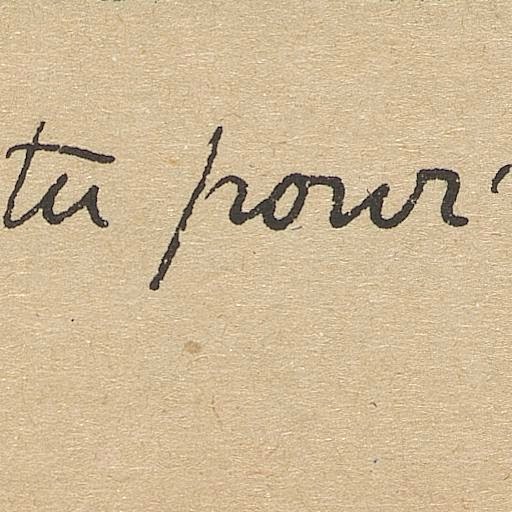 tu pour